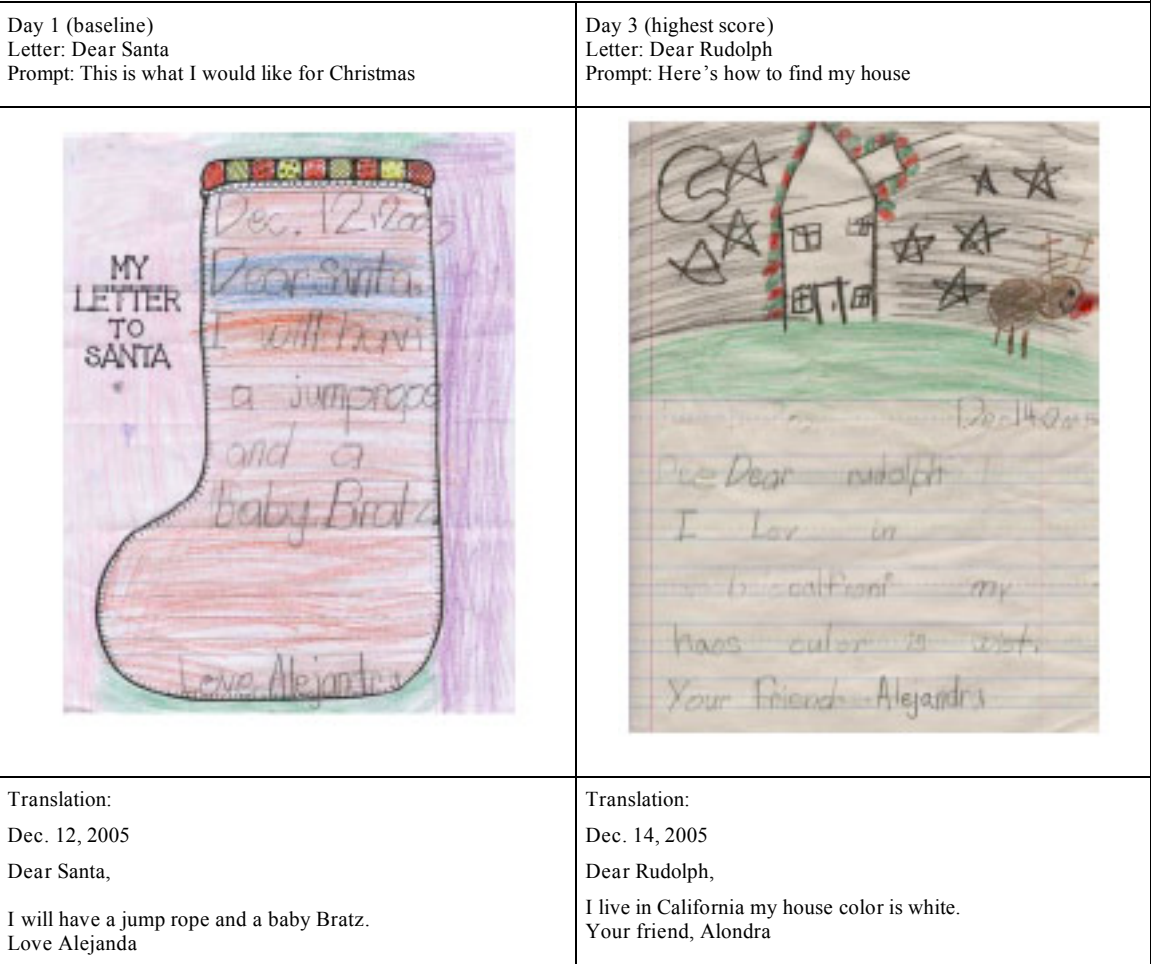 Day 1 (baseline)
Letter: Dear Santa
Prompt: This is what I would like for Christmas
Day 3 (highest score)
Letter: Dear Rudolph
Prompt: Here's how to find my house
MY
LETTER
TO
SANTA
Dec. 12, 2005
Dear Santa,
I will hav
a jumprope
and a
baby Bratz
Love Alejandra
Dec 14 2005
Dear rudolph
I Lov in
calfroni my
haos culor is wist.
Your friend Alejandra
Translation:
Dec. 12, 2005
Dear Santa,
I will have a jump rope and a baby Bratz.
Love Alejanda
Translation:
Dec. 14, 2005
Dear Rudolph,
I live in California my house color is white.
Your friend, Alondra